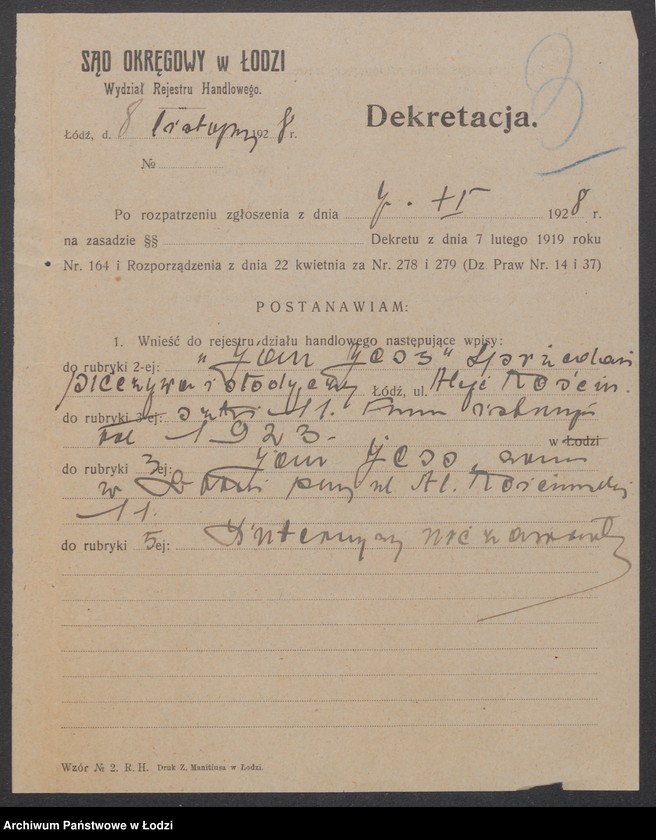 SĄD OKRĘGOWY w ŁODZI
Wydział Rejestru Handlowego.
Łódź, d. 8 listopad 1928 r.
Dekretacja.
№
Po rozpatrzeniu zgłoszenia z dnia 7. XI 1928 r.
na zasadzie §§ Dekretu z dnia 7 lutego 1919 roku
Nr. 164 i Rozporządzenia z dnia 22 kwietnia za Nr. 278 i 279 (Dz. Praw Nr. 14 i 37)
POSTANAWIAM:
1. Wnieść do rejestru działu handlowego następujące wpisy:
do rubryki 2-ej: "Jan Joss" Sprzedaż
pieczywa i słodyczy Łódź, ul. Aleje Kościu.
do rubryki 3-ej: szki 11. Firma istnieje
od 1923.- w Łodzi
do rubryki 3ej: Jan Joss, zam.
w Łodzi przy ul Al. Kościuszki
11.
do rubryki 5ej: Intercyzy nie zawarł
Wzór № 2. R. H. Druk Z. Manitiusa w Łodzi.
Archiwum Państwowe w Łodzi